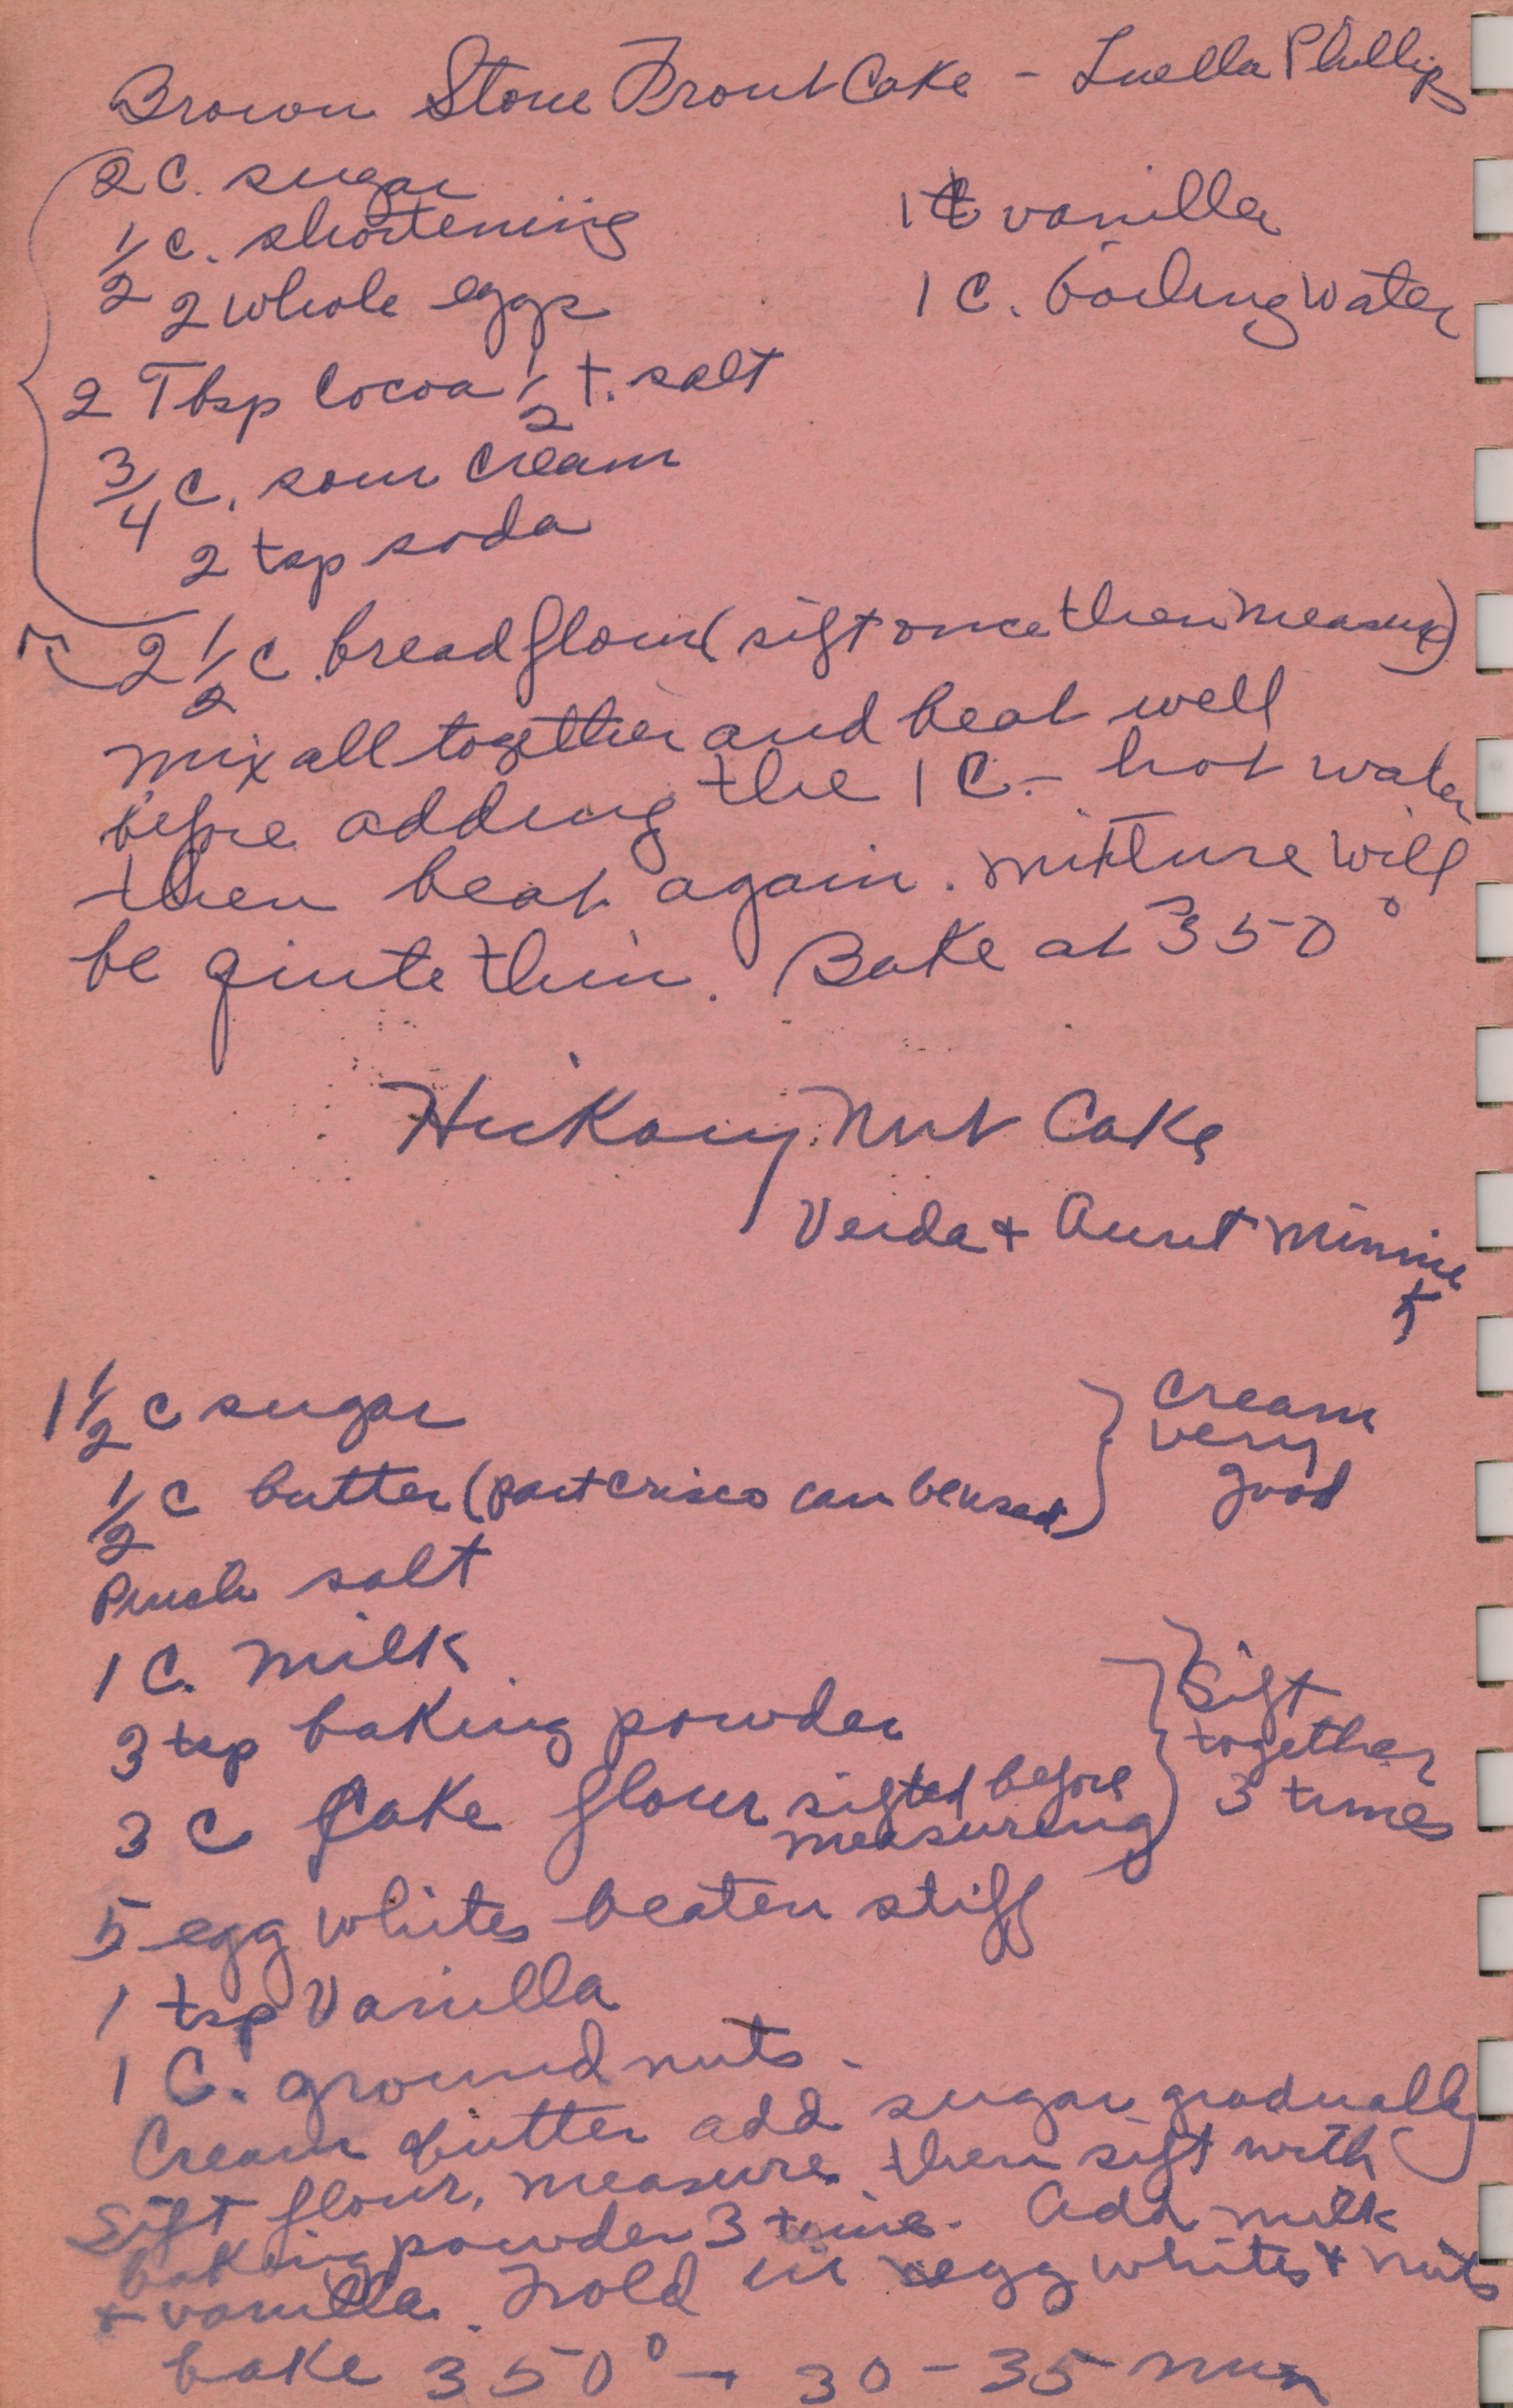 Brown Stone Front Cake - Luella Phillips
2 C. sugar
1/2 C. shortening
2 whole eggs
2 Tbsp Cocoa 1/2 t. salt
3/4 C. sour cream
2 tsp soda
1 t vanilla
1 C. boiling water
2 1/2 C. bread flour (sift once then measure)
mix all together and beat well
before adding the 1 C. hot water
then beat again. mixture will
be quite thin. Bake at 350°
Hickory Nut Cake
Verda + Aunt Minnie
1 1/2 C sugar
1/2 C butter (part crisco can be used)
cream
very
good
Pinch salt
1 C. milk
3 tsp baking powder
3 C cake flour sifted before
measuring
Sift
together
3 times
5 egg whites beaten stiff
1 tsp Vanilla
1 C. ground nuts.
Cream butter add sugar gradually
Sift flour, measure then sift with
baking powder 3 time. Add milk
+ vanilla. Fold in egg whites + nuts
bake 350° - 30 - 35 min